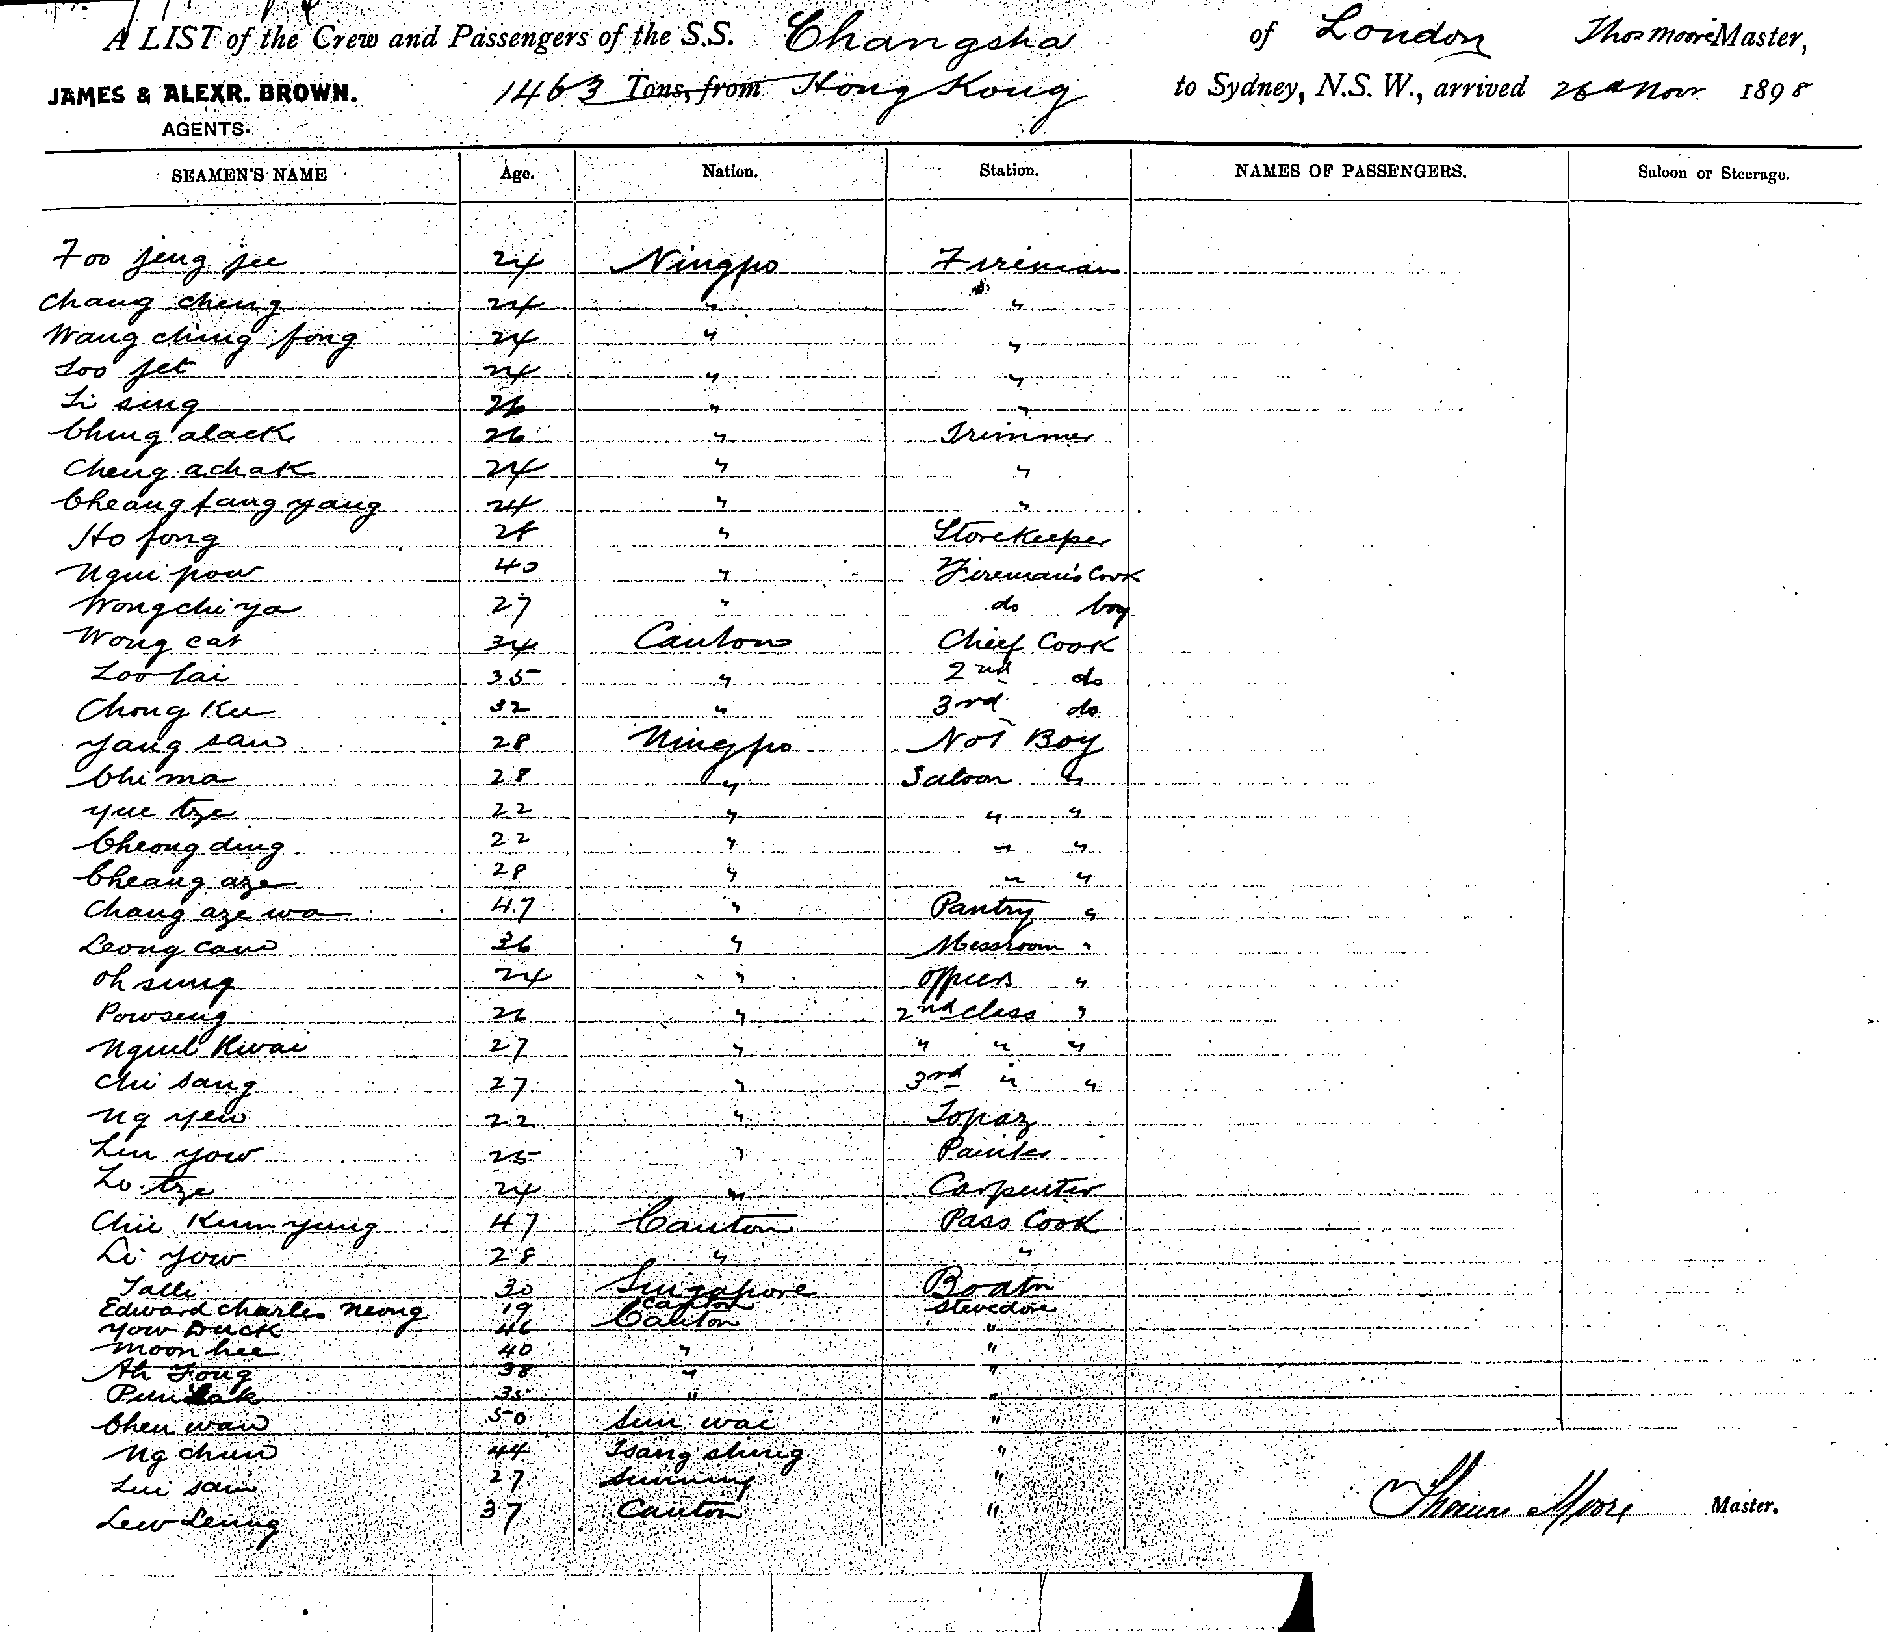 A LIST of the Crew and Passengers of the S.S. Changsha of London Thos Moore Master,
JAMES & ALEXR. BROWN. 1463 Tons, from Hong Kong to Sydney, N.S.W., arrived 26th Novr 1898
AGENTS.
SEAMEN'S NAME Age. Nation. Station. NAMES OF PASSENGERS. Saloon or Steerage.
Foo jeng jee 24 Ningpo Fireman
Chang cheng 24 " "
Wang ching fong 24 " "
Soo jet 24 " "
Li sing 26 " "
Ching alack 26 " Trimmer
Cheng achak 24 " "
Cheang fang yang 24 " "
Ho fong 28 " Storekeeper
Ngui pow 40 " Fireman's Cook
Wong chi ya 27 " do boy
Wong cat 34 Canton Chief Cook
Loo lai 35 " 2nd do
Chong Kee 32 " 3rd do
Yang san 28 Ningpo No 1 Boy
Chi ma 28 " Saloon "
Yue tze 22 " " "
Cheong ding 22 " " "
Cheang aze 28 " " "
Chang aze wa 47 " Pantry "
Leong can 36 " Messroom "
Oh sung 24 " Officers "
Powseng 26 " 2nd class "
Kwai 27 " " " "
Chi sang 27 " 3rd " "
Ng yew 22 " Topaz
Lin yow 25 " Painter
Lo tze 24 " Carpenter
Chie Kum yung 47 Canton Pass Cook
Li yow 28 " "
Talli 30 Singapore Boatn
Edward Charles Neong 19 Canton Stevedore
Yow Duck 46 Canton "
Moon hee 40 " "
Ah Fong 38 " "
Pun Lak 35 " "
Chen wan 50 Sun wai "
Ng chun 44 Tsang shing "
Lui sam 27 Sunning "
Lew Leung 37 Canton "
Thomas Moore Master.